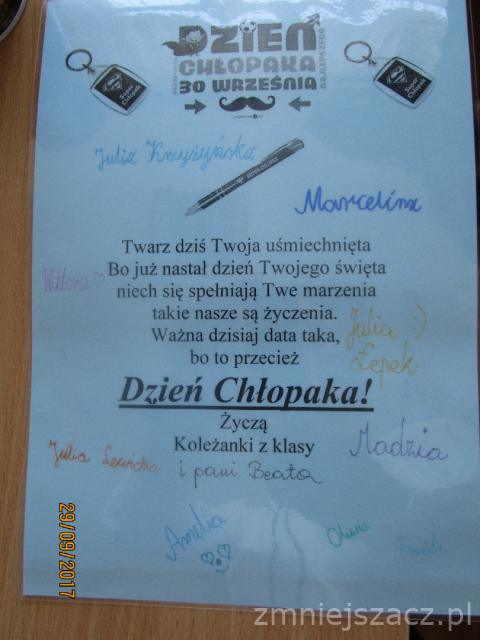 DZIEŃ
CHŁOPAKA
30 WRZEŚNIA
Super Chłopak
Super Chłopak
Julia Krzyżyńska
Marcelina
Twarz dziś Twoja uśmiechnięta
Wiktoria
Bo już nastał dzień Twojego święta
niech się spełniają Twe marzenia
takie nasze są życzenia.
Ważna dzisiaj data taka,
Julia :)
Łepek
bo to przecież
Dzień Chłopaka!
Życzą
Koleżanki z klasy
Madzia
Julia
i pani Beata
Amelia
29/09/2017
zmniejszacz.pl